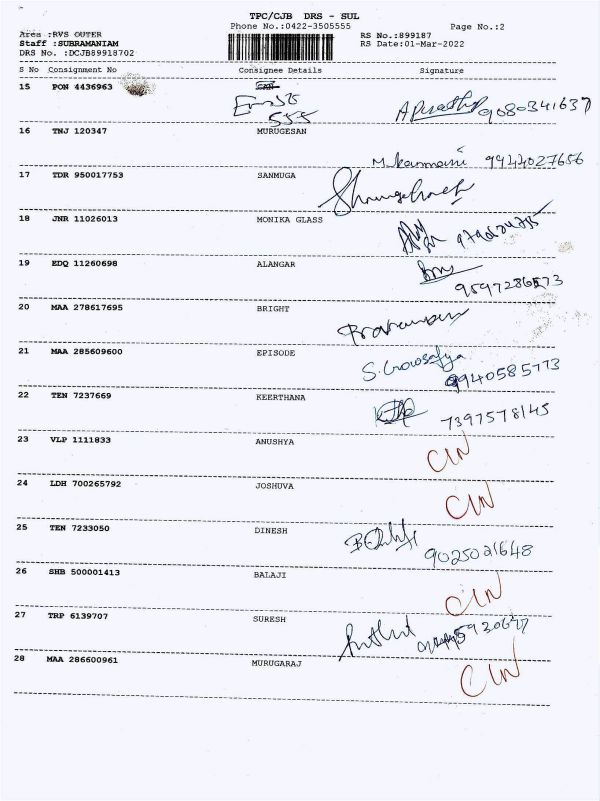 TPC/CJB DRS - SUL
Phone No.:0422-3505555 Page No.:2
Area :RVS OUTER RS No.:899187
Staff :SUBRAMANIAM RS Date:01-Mar-2022
DRS No. :DCJB89918702
S No Consignment No Consignee Details Signature
15 PON 4436963
555 9080341637
16 TNJ 120347 MURUGESAN
9944027656
17 TDR 950017753 SANMUGA
18 JNR 11026013 MONIKA GLASS
19 EDQ 11260698 ALANGAR
9597286573
20 MAA 278617695 BRIGHT
21 MAA 285609600 EPISODE
9940585773
22 TEN 7237669 KEERTHANA
7397578145
23 VLP 1111833 ANUSHYA
CIN
24 LDH 700265792 JOSHUVA
CIN
25 TEN 7233050 DINESH
9025021648
26 SHB 500001413 BALAJI
CIN
27 TRP 6139707 SURESH
28 MAA 286600961 MURUGARAJ
CIN